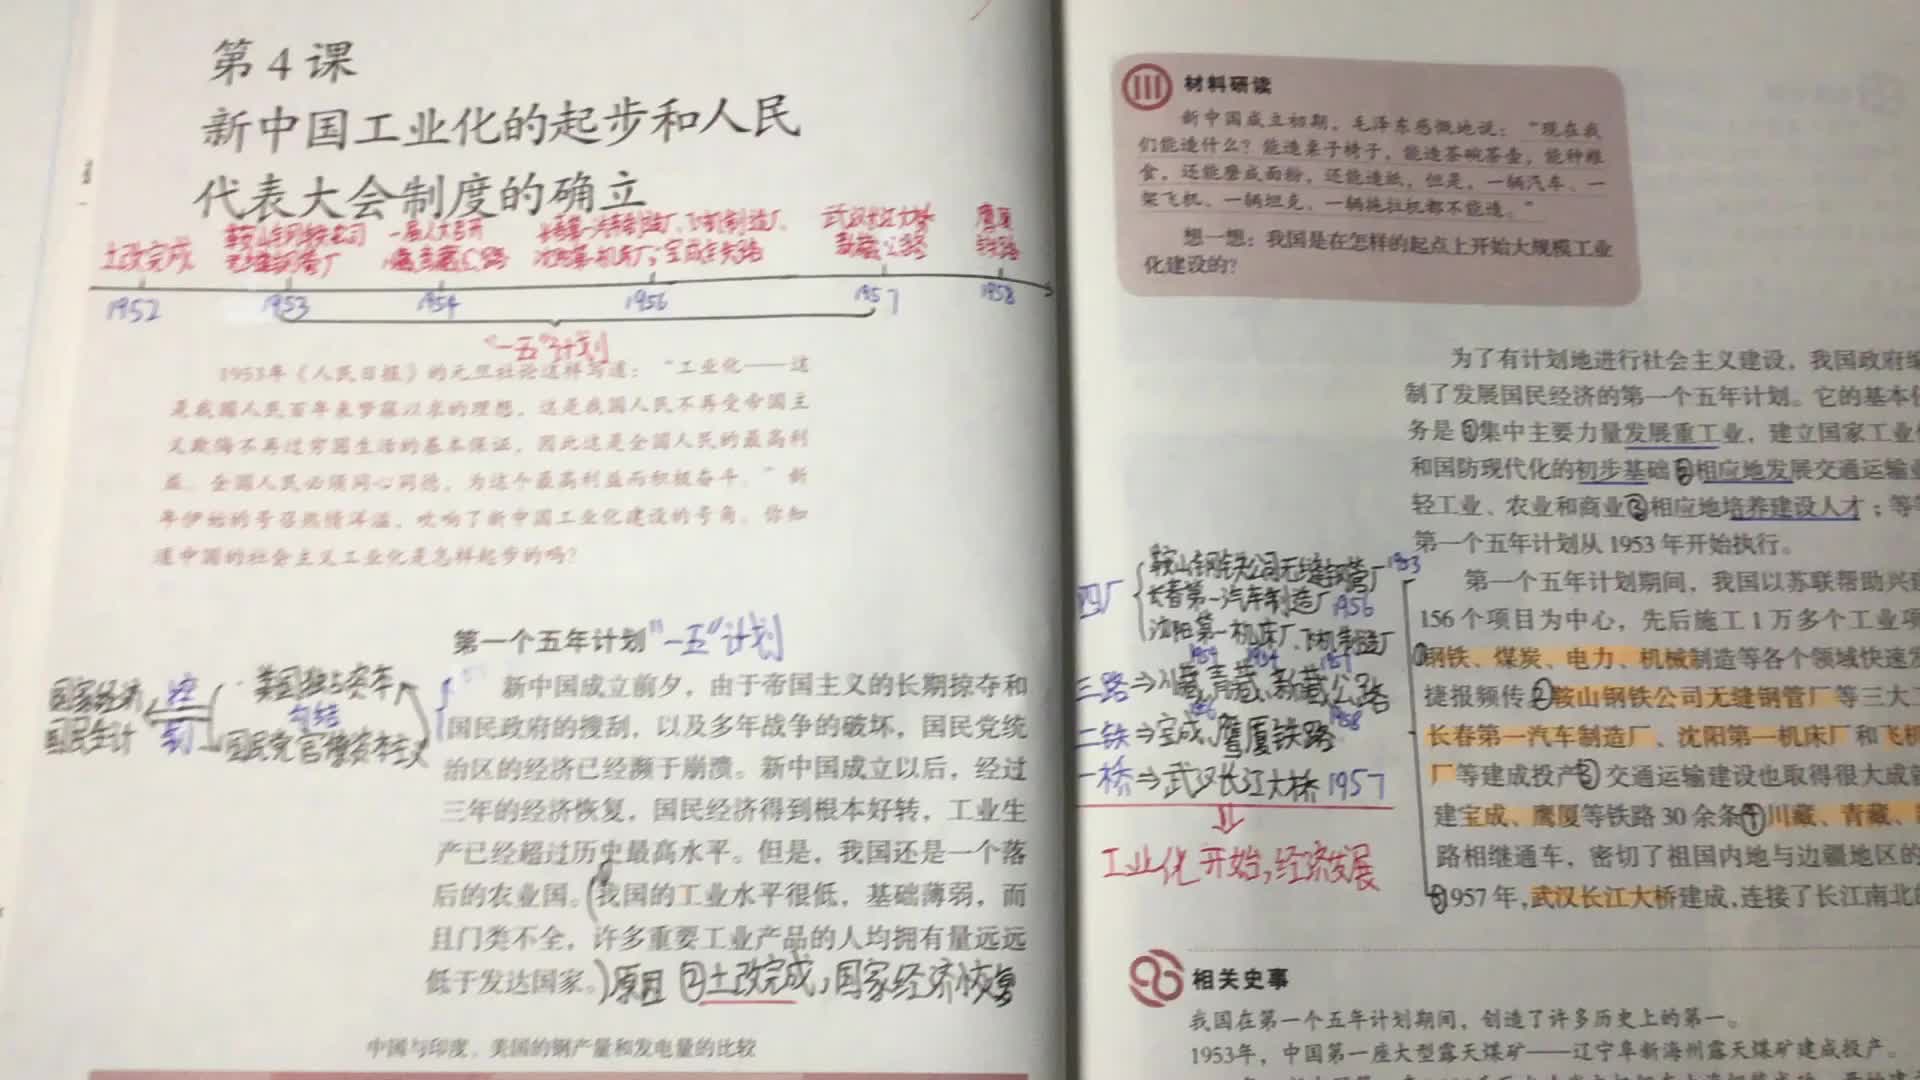 第4课
新中国工业化的起步和人民
代表大会制度的确立
土改完成
鞍山钢铁公司
无缝钢管厂
一届人大召开
川藏青藏公路
长春第一汽车制造厂、飞机制造厂、
沈阳第一机床厂;宝成铁路
武汉长江大桥
新藏公路
鹰厦
铁路
1952 1953 1954 1956 1957 1958
“一五”计划
1953年《人民日报》的元旦社论这样写道：“工业化——这
是我国人民百年来梦寐以求的理想，这是我国人民不再受帝国主
义欺侮不再过穷困生活的基本保证，因此这是全国人民的最高利
益。全国人民必须同心同德，为这个最高利益而积极奋斗。”新
年伊始的号召热情洋溢，吹响了新中国工业化建设的号角。你知
道中国的社会主义工业化是怎样起步的吗？
第一个五年计划 “一五”计划
国家经济
国民生计
控
制
美国独占资本
勾结
国民党官僚资本主义
新中国成立前夕，由于帝国主义的长期掠夺和
国民政府的搜刮，以及多年战争的破坏，国民党统
治区的经济已经濒于崩溃。新中国成立以后，经过
三年的经济恢复，国民经济得到根本好转，工业生
产已经超过历史最高水平。但是，我国还是一个落
后的农业国。(我国的工业水平很低，基础薄弱，而
且门类不全，许多重要工业产品的人均拥有量远远
低于发达国家。)原因 ②土改完成，国家经济恢复
中国与印度、美国的钢产量和发电量的比较
材料研读
新中国成立初期，毛泽东感慨地说：“现在我
们能造什么？能造桌子椅子，能造茶碗茶壶，能种粮
食，还能磨成面粉，还能造纸，但是，一辆汽车、一
架飞机、一辆坦克、一辆拖拉机都不能造。”
想一想：我国是在怎样的起点上开始大规模工业
化建设的？
为了有计划地进行社会主义建设，我国政府编
制了发展国民经济的第一个五年计划。它的基本任
务是①集中主要力量发展重工业，建立国家工业化
和国防现代化的初步基础②相应地发展交通运输业
轻工业、农业和商业③相应地培养建设人才；等等
第一个五年计划从1953年开始执行。
第一个五年计划期间，我国以苏联帮助兴建
156个项目为中心，先后施工1万多个工业项
①钢铁、煤炭、电力、机械制造等各个领域快速发
捷报频传②鞍山钢铁公司无缝钢管厂等三大工
长春第一汽车制造厂、沈阳第一机床厂和飞机
厂等建成投产③交通运输建设也取得很大成就
建宝成、鹰厦等铁路30余条④川藏、青藏、新
路相继通车，密切了祖国内地与边疆地区的
⑤1957年，武汉长江大桥建成，连接了长江南北的
四厂
鞍山钢铁公司无缝钢管厂 1953
长春第一汽车制造厂 1956
沈阳第一机床厂、飞机制造厂
1954 1954 1957
三路⇒川藏,青藏,新藏公路
1956 1958
二铁⇒宝成,鹰厦铁路
一桥⇒武汉长江大桥 1957
工业化开始,经济发展
相关史事
我国在第一个五年计划期间，创造了许多历史上的第一。
1953年，中国第一座大型露天煤矿——辽宁阜新海州露天煤矿建成投产。